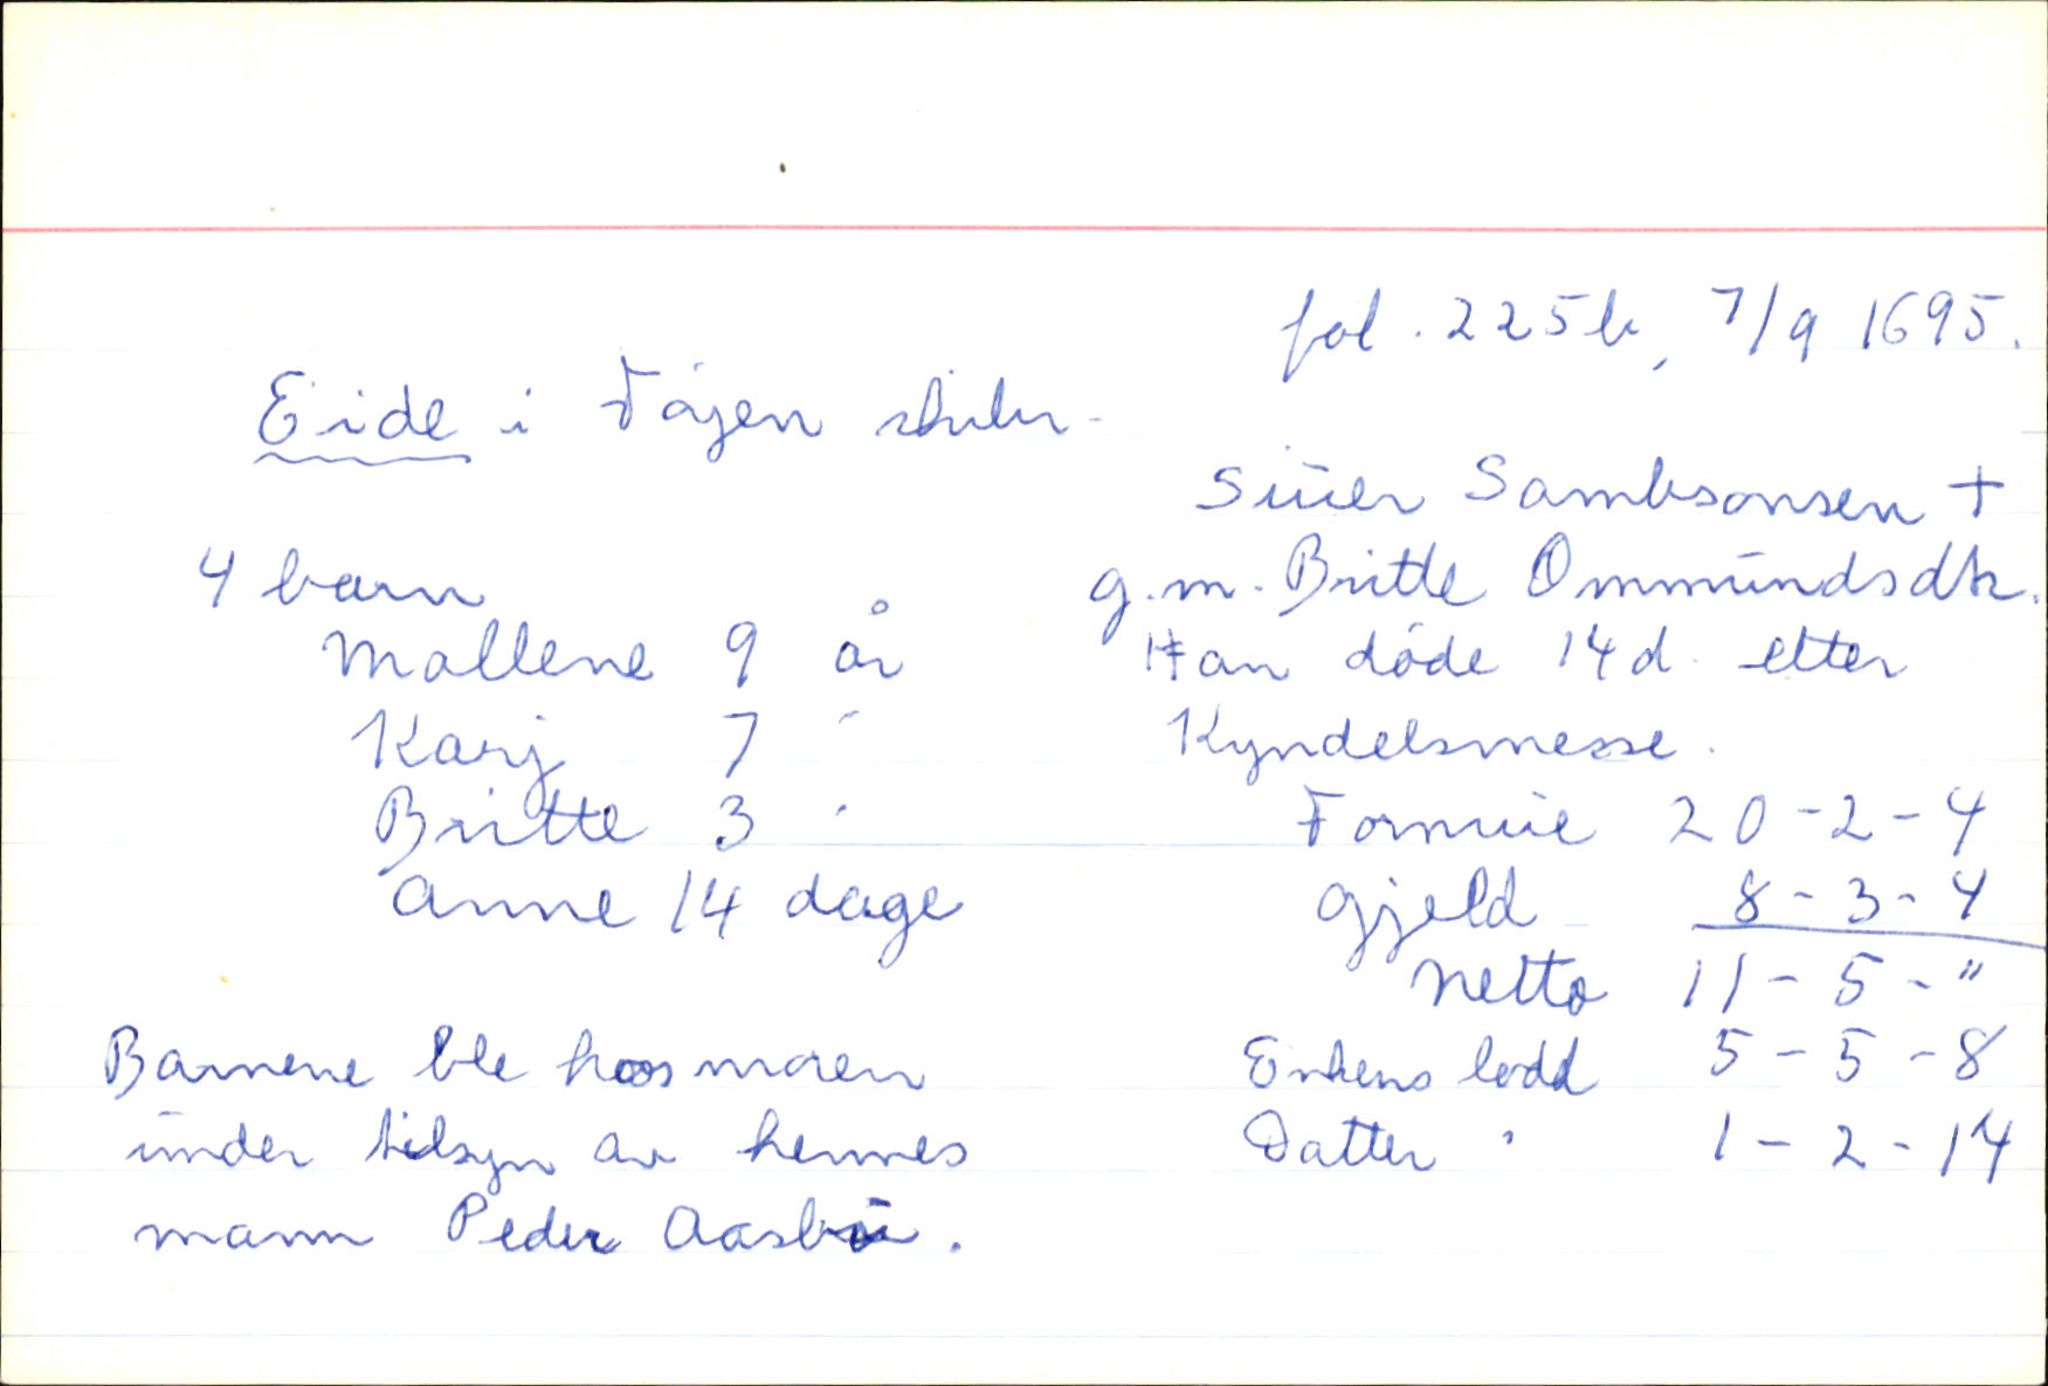 fol. 225b, 7/9 1695.
Eide i Vågen skibr.
Siuer Sambsonsen +
4 barn
g.m. Britte Ommundsdtr.
Mallene 9 år
Han døde 14 d. etter
Karj 7 "
Kyndelsmesse.
Britte 3 "
Formue 20 - 2 - 4
Anne 14 dage
Gjeld 8 - 3 - 4
Netto 11 - 5 - "
Barnene ble hos moren
Enkens lodd 5 - 5 - 8
under tilsyn av hennes
Datter " 1 - 2 - 14
mann Peder Aasbø.